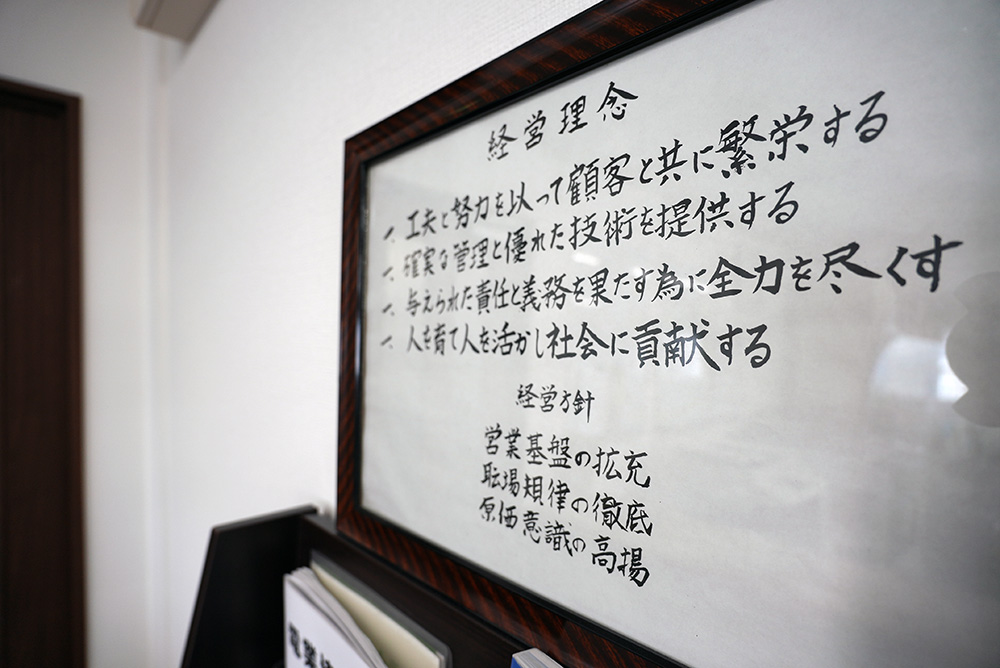 経営理念
一、工夫と努力を以って顧客と共に繁栄する
一、確実な管理と優れた技術を提供する
一、与えられた責任と義務を果たす為に全力を尽くす
一、人を育て人を活かし社会に貢献する
経営方針
営業基盤の拡充
職場規律の徹底
原価意識の高揚